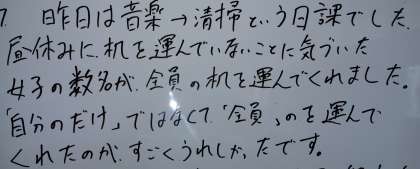 7. 昨日は音楽→清掃という日課でした。
昼休みに、机を運んでいないことに気づいた
女子の数名が、全員の机を運んでくれました。
「自分のだけ」ではなくて「全員」のを運んで
くれたのが、すごくうれしかったです。